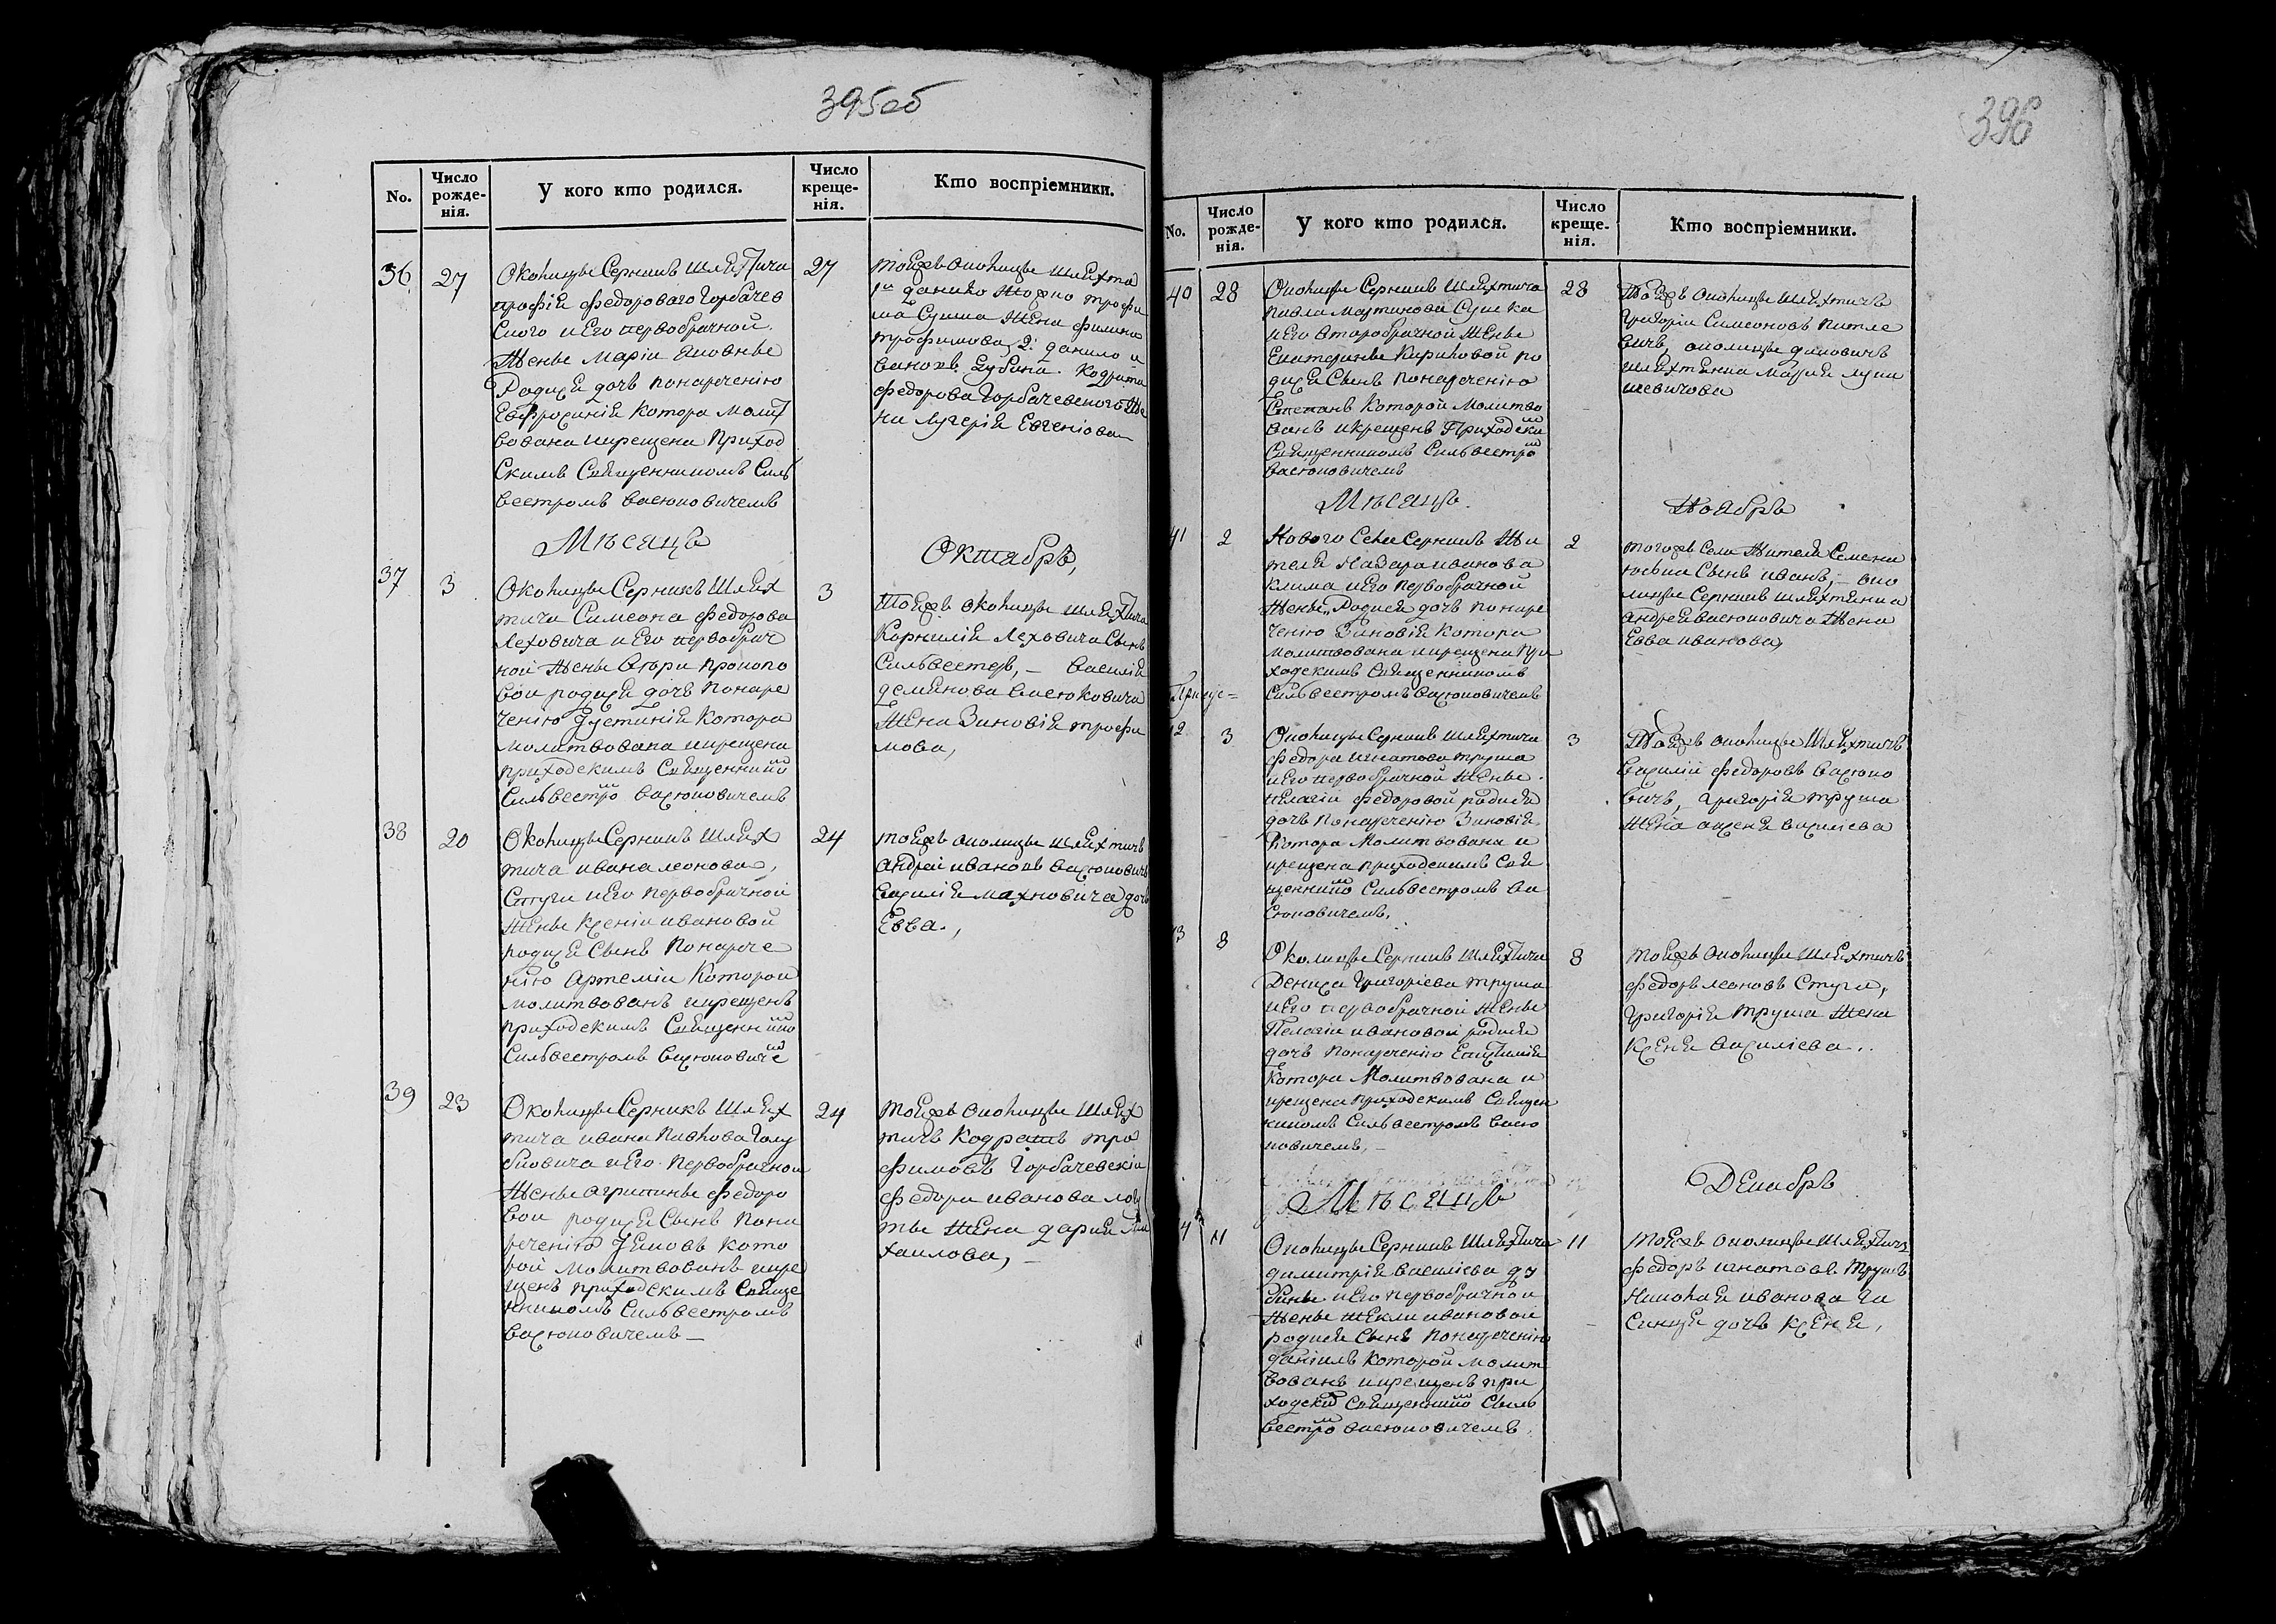 395об
No.
Число рожде-нія.
У кого кто родился.
Число креще-нія.
Кто воспріемники.
36
27
Околицы Серникъ Шляхтича
трофія федорова Горбачев
ского и Его первобрачной
Женѣ Маріи
Родися дочь понареченію
Евфросинія котора Молит
вована икрещена Приход
скимъ Священникомъ Силь
вестромъ васюковичемъ
27
тойжъ околицы шляхта
1й данило трофи
ма Сушка Жена
трофимова, 2й данило и
вановъ Дубина. Кодрата
федорова Горбачевского Же
на Лукерія Евгеніова
Мѣсяцъ
Октябрь,
37
3
Околицы Серникъ Шлях
тича Симеона федорова
Леховича и Его первобрач
ной Женѣ прокопо
вои родися дочь понаре
ченію Іустинія котора
молитвована икрещена
приходскимъ Священнико
Сильвестро васюковичемъ
3
Тойжъ околицы шляхтича
Корнилія Леховича Сынъ
Сильвестеръ, — василія
демянова васюковича
Жена Зиновія трофи
мова,
38
20
Околицы Серникъ Шлях
тича ивана леонова,
Стуги и Его первобрачной
Женѣ Ксеніи ивановой
родися Сынъ Понарече
нію Артемій Которой
молитвованъ икрещенъ
приходскимъ Священнико
Сильвестромъ васюковиче
24
тойжъ околицы шляхтичъ
андрей ивановъ васюковичъ
василія махновича дочь
Евва.,
39
23
Околицы Серникъ Шлях
тича ивана Павлова Голу
бовича и Его первобрачной
Женѣ агрипинѣ федоро
вои родися Сынъ пона
реченію Іяковъ кото
рой Молитвованъ икре
щенъ приходскимъ Свяще
нникомъ Сильвестромъ
васюковичемъ —
24
тойжъ околицы Шлях
тичъ Кодратъ тро
фимовъ Горбачевскій
федора иванова
Жена дарія Ми
хаилова, —
396
No.
Число рожде-нія.
У кого кто родился.
Число креще-нія.
Кто воспріемники.
40
28
Околицы Серникъ Шляхтича
павла мартинова Сушка
и Его второбрачной Женѣ
Екатеринѣ Кириловой ро
дися Сынъ понареченію
Степанъ Которой Молитво
ванъ икрещенъ Приходски
Священникомъ Сильвестро
васюковичемъ
28
Тойжъ околицы Шляхтичъ
Григорій Симеоновъ Питке
вичъ, околицы
шляхтянка Марія лука
шевичова
Мѣсяцъ
Ноябрь
41
2
Нового Села Серникъ Жи
теля Назара иванова
клима и Его первобрачной
Женѣ,, Родися дочь понаре
ченію Зиновія котора
молитвована икрещена при
ходскимъ Священникомъ
Сильвестромъ васюковичемъ
2
тогожъ Села Жителя Семена
Сынъ иванъ, — око
лицы Серникъ шляхтянка
андрея васюковича Жена
Евва иванова,
42
3
Околицы Серникъ Шляхтича
федора игнатова труша
и Его первобрачной Женѣ
пелагіи федоровой родися
дочь понареченію Зиновія
Котора Молитвована и
крещена приходскимъ Свя
щеннико Сильвестромъ ва
сюковичемъ.
3
Тойжъ околицы Шляхтичъ
василій федоровъ васюко
вичъ, григорія труша
Жена ксенія василіева
43
8
Околицы Серникъ Шляхтича
Дениса Григоріева труша
и Его первобрачной Женѣ
Пелагіи ивановой родися
дочь понареченію
Котора Молитвована и
крещена приходскимъ Священ
никомъ Сильвестромъ васю
ковичемъ, —
8
тойжъ околицы Шляхтичъ
федоръ леоновъ Стуга,
Григорія труша Жена
Ксенія василіева..
Мѣсяцъ
Декабрь
11
Околицы Серникъ Шляхтича
димитрія василіева ду
бины и Его первобрачной
Женѣ Фекли ивановой
родися Сынъ понареченію
даніилъ которой молит
вованъ икрещенъ при
ходски Священнико Силь
вестро васюковичемъ.
11
тойжъ околицы Шляхтичъ
федоръ игнатовъ Трушъ
Николая иванова
дочь Ксенія,